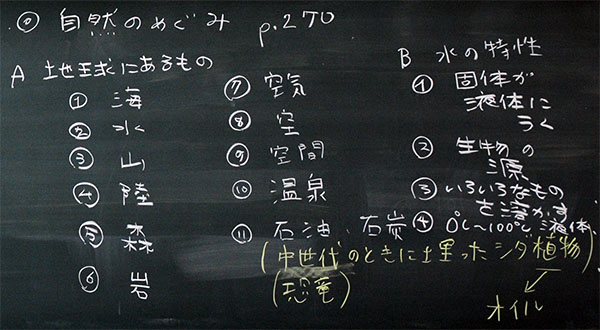 ◎ 自然のめぐみ p.270
A 地球にあるもの
① 海
② 水
③ 山
④ 陸
⑤ 森
⑥ 岩
⑦ 空気
⑧ 空
⑨ 空間
⑩ 温泉
⑪ 石油、石炭
(中世代のときに土里った シダ植物)
(恐竜)
オイル
B 水の特性
① 固体が
液体に
うく
② 生物の
源
③ いろいろなもの
を溶かす
④ 0℃〜100℃液体